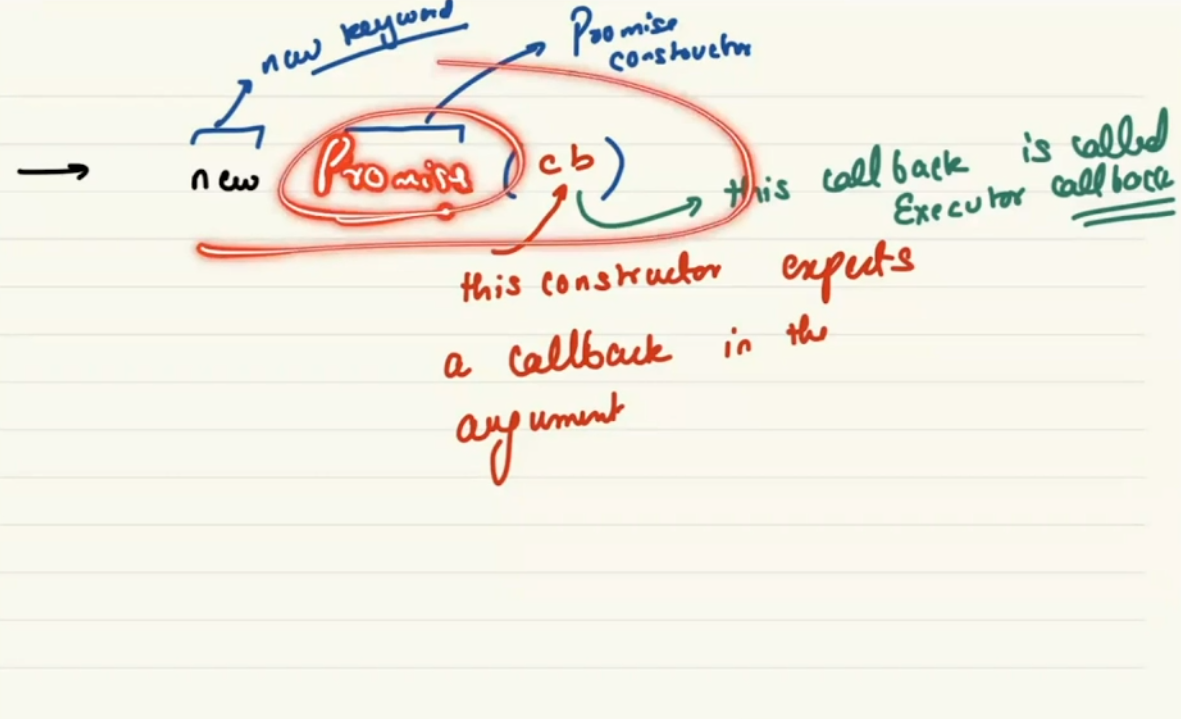 new keyword
Promise
constructor
new Promise (cb)
this callback is called
Executor callback
this constructor expects
a callback in the
argument